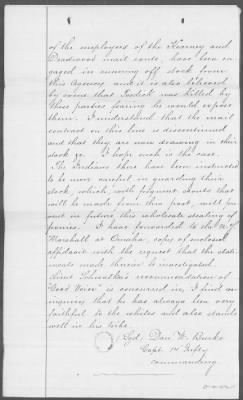 of the employees of the Kearney and
Deadwood mail route, have been en-
gaged in running off stock from
this Agency and it is also believed
by some that Fosdick was killed by
these parties fearing he would expose
them. I understand that the mail
contract on this line is discontinued
and that they are now drawing in their
stock &c. I hope such is the case.
The Indians they have been instructed
to be more careful in guarding their
stock, which, with frequent scouts that
will be made from this post, will pre-
vent in future this wholesale stealing of
ponies. I have forwarded to the U.S.
Marshall at Omaha, copy of enclosed
affidavit with the request that the state-
ments made therein be investigated.
Lieut Schwatka's recommendation of
"Good Voice" is concurred in, I find on
inquiries that he has always been very
faithful to the whites and also stands
well in his tribe.
Sgd. Dan W. Burke
Capt. 14" Infty.
Commanding.
over